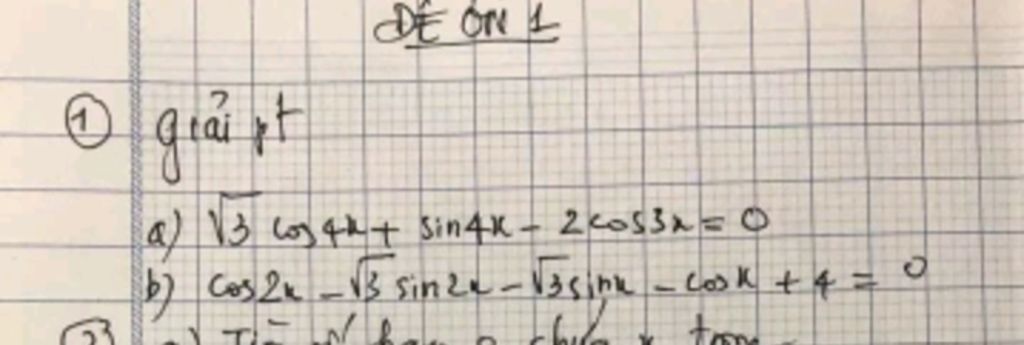 ĐỀ ÔN 1
① giải pt
a) √3 cos4x + sin4x - 2cos3x = 0
b) cos2x - √3 sin2x - √3 sinx - cosx + 4 = 0
②